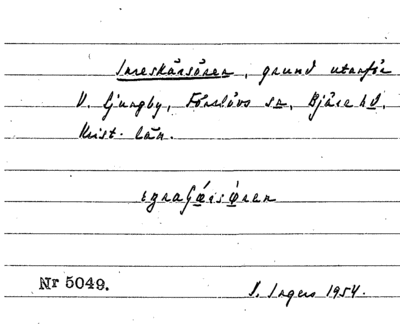 Inreskärsören, grund utanför
V. Ljungby, Förslövs sn, Bjäre hd,
Krist. län.
Nr 5049.
I. Ingers 1954.